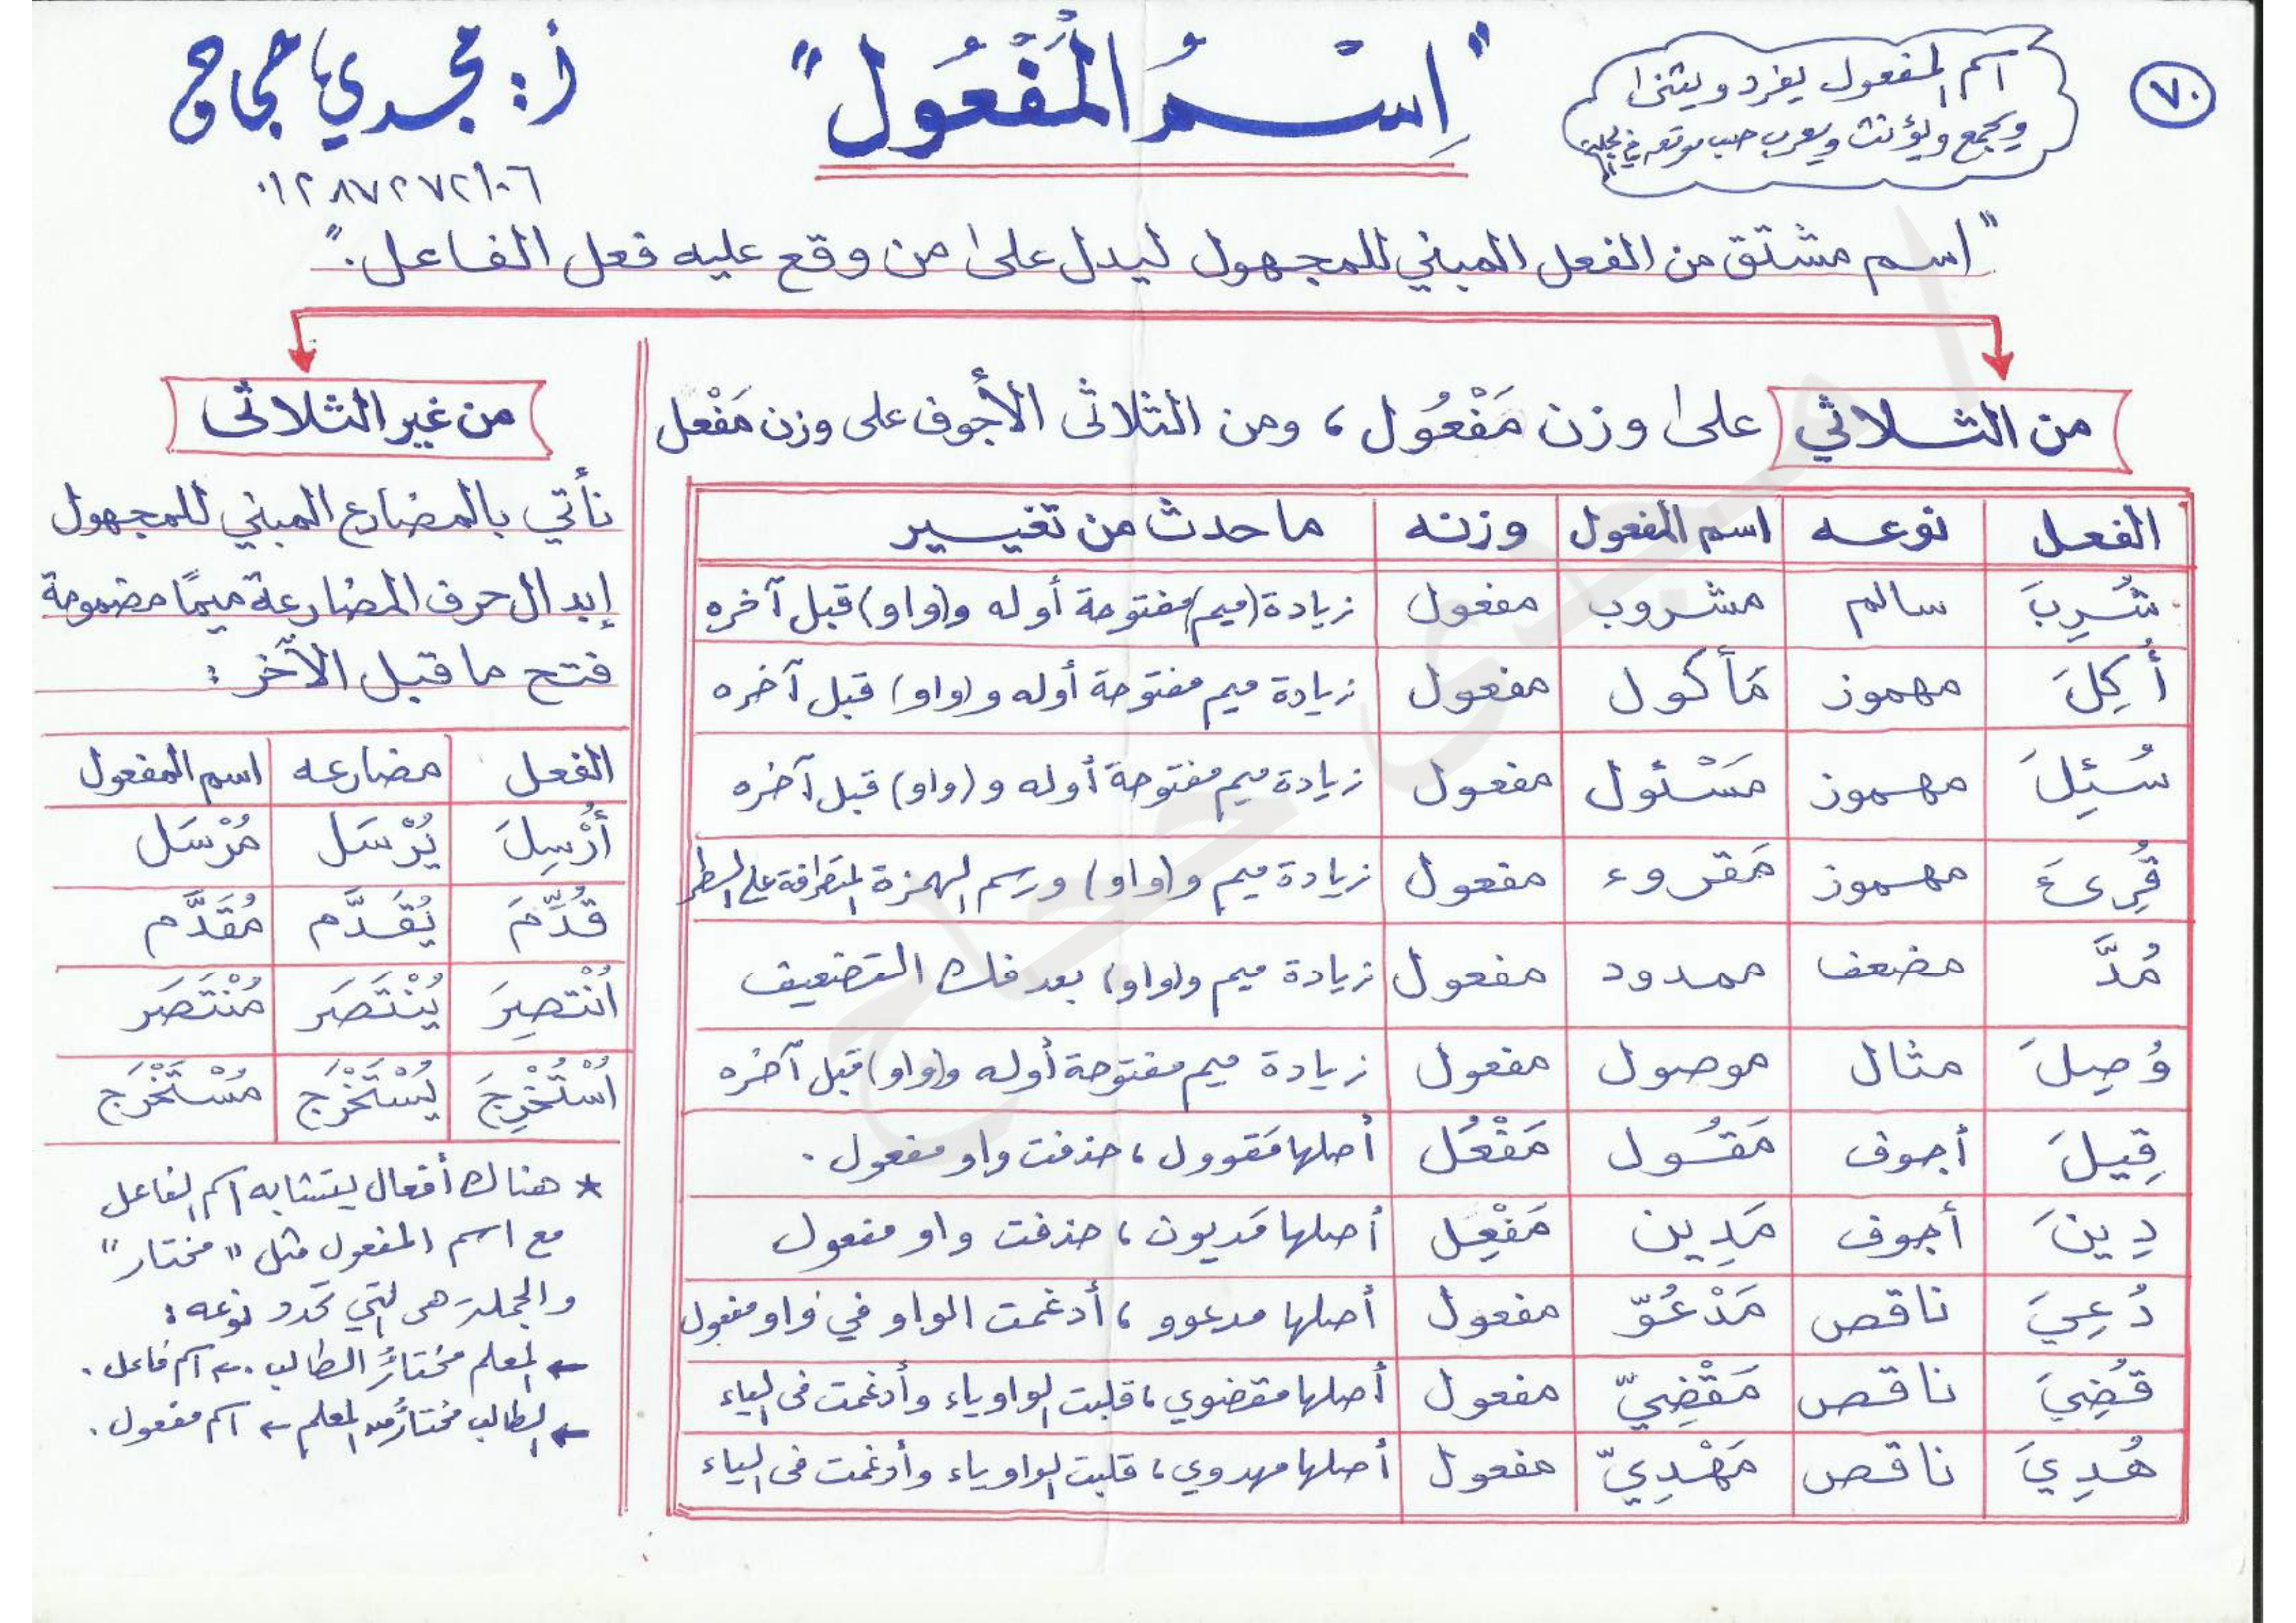 ٧٠
اسم المفعول يفرد ويثنى
ويجمع ويؤنث ويعرب حسب موقعه في الجملة
"اِسْمُ الْمَفْعُول"
أ: مجدي حجاج
٠١٢٨٧٢٧٢١٠٦
"اسم مشتق من الفعل المبني للمجهول ليدل على من وقع عليه فعل الفاعل."
من الثلاثي على وزن مَفْعُول، ومن الثلاثى الأجوف على وزن مَفْعل
الفعل نوعه اسم المفعول وزنه ما حدث من تغيير
شُرِبَ سالم مشروب مفعول زيادة (ميم) مفتوحة أوله و(واو) قبل آخره
أُكِلَ مهموز مَأكول مفعول زيادة ميم مفتوحة أوله و(واو) قبل آخره
سُئِلَ مهموز مَسْئول مفعول زيادة ميم مفتوحة أوله و(واو) قبل آخره
قُرِئَ مهموز مَقروء مفعول زيادة ميم و(واو) ورسم الهمزة المتطرفة على السطر
مُدَّ مضعف ممدود مفعول زيادة ميم و(واو) بعد فك التضعيف
وُصِلَ مثال موصول مفعول زيادة ميم مفتوحة أوله و(واو) قبل آخره
قِيلَ أجوف مَقُول مَفْعُل أصلها مَقوول، حذفت واو مفعول.
دِينَ أجوف مَدِين مَفْعِل أصلها مَديون، حذفت واو مفعول
دُعِيَ ناقص مَدْعُوّ مفعول أصلها مدعوو، أدغمت الواو في واو مفعول
قُضِيَ ناقص مَقْضِيّ مفعول أصلها مقضوي، قلبت الواو ياء وأدغمت فى الياء
هُدِيَ ناقص مَهْدِيّ مفعول أصلها مهدوي، قلبت الواو ياء وأدغمت فى الياء
من غير الثلاثى
نأتي بالمضارع المبني للمجهول
إبدال حرف المضارعة ميمًا مضمومة
فتح ما قبل الآخر:
الفعل مضارعه اسم المفعول
أُرْسِلَ يُرْسَل مُرْسَل
قُدِّمَ يُقَدَّم مُقَدَّم
اُنْتُصِرَ يُنْتَصَر مُنْتَصَر
اُسْتُخْرِجَ يُسْتَخْرَج مُسْتَخْرَج
* هناك أفعال يتشابه اسم الفاعل
مع اسم المفعول مثل "مختار"
والجملة هى التي تحدد نوعه:
← المعلم مختارُ الطالب. ← اسم فاعل.
← الطالب مختارٌ من المعلم ← اسم مفعول.
مجدى حجاج